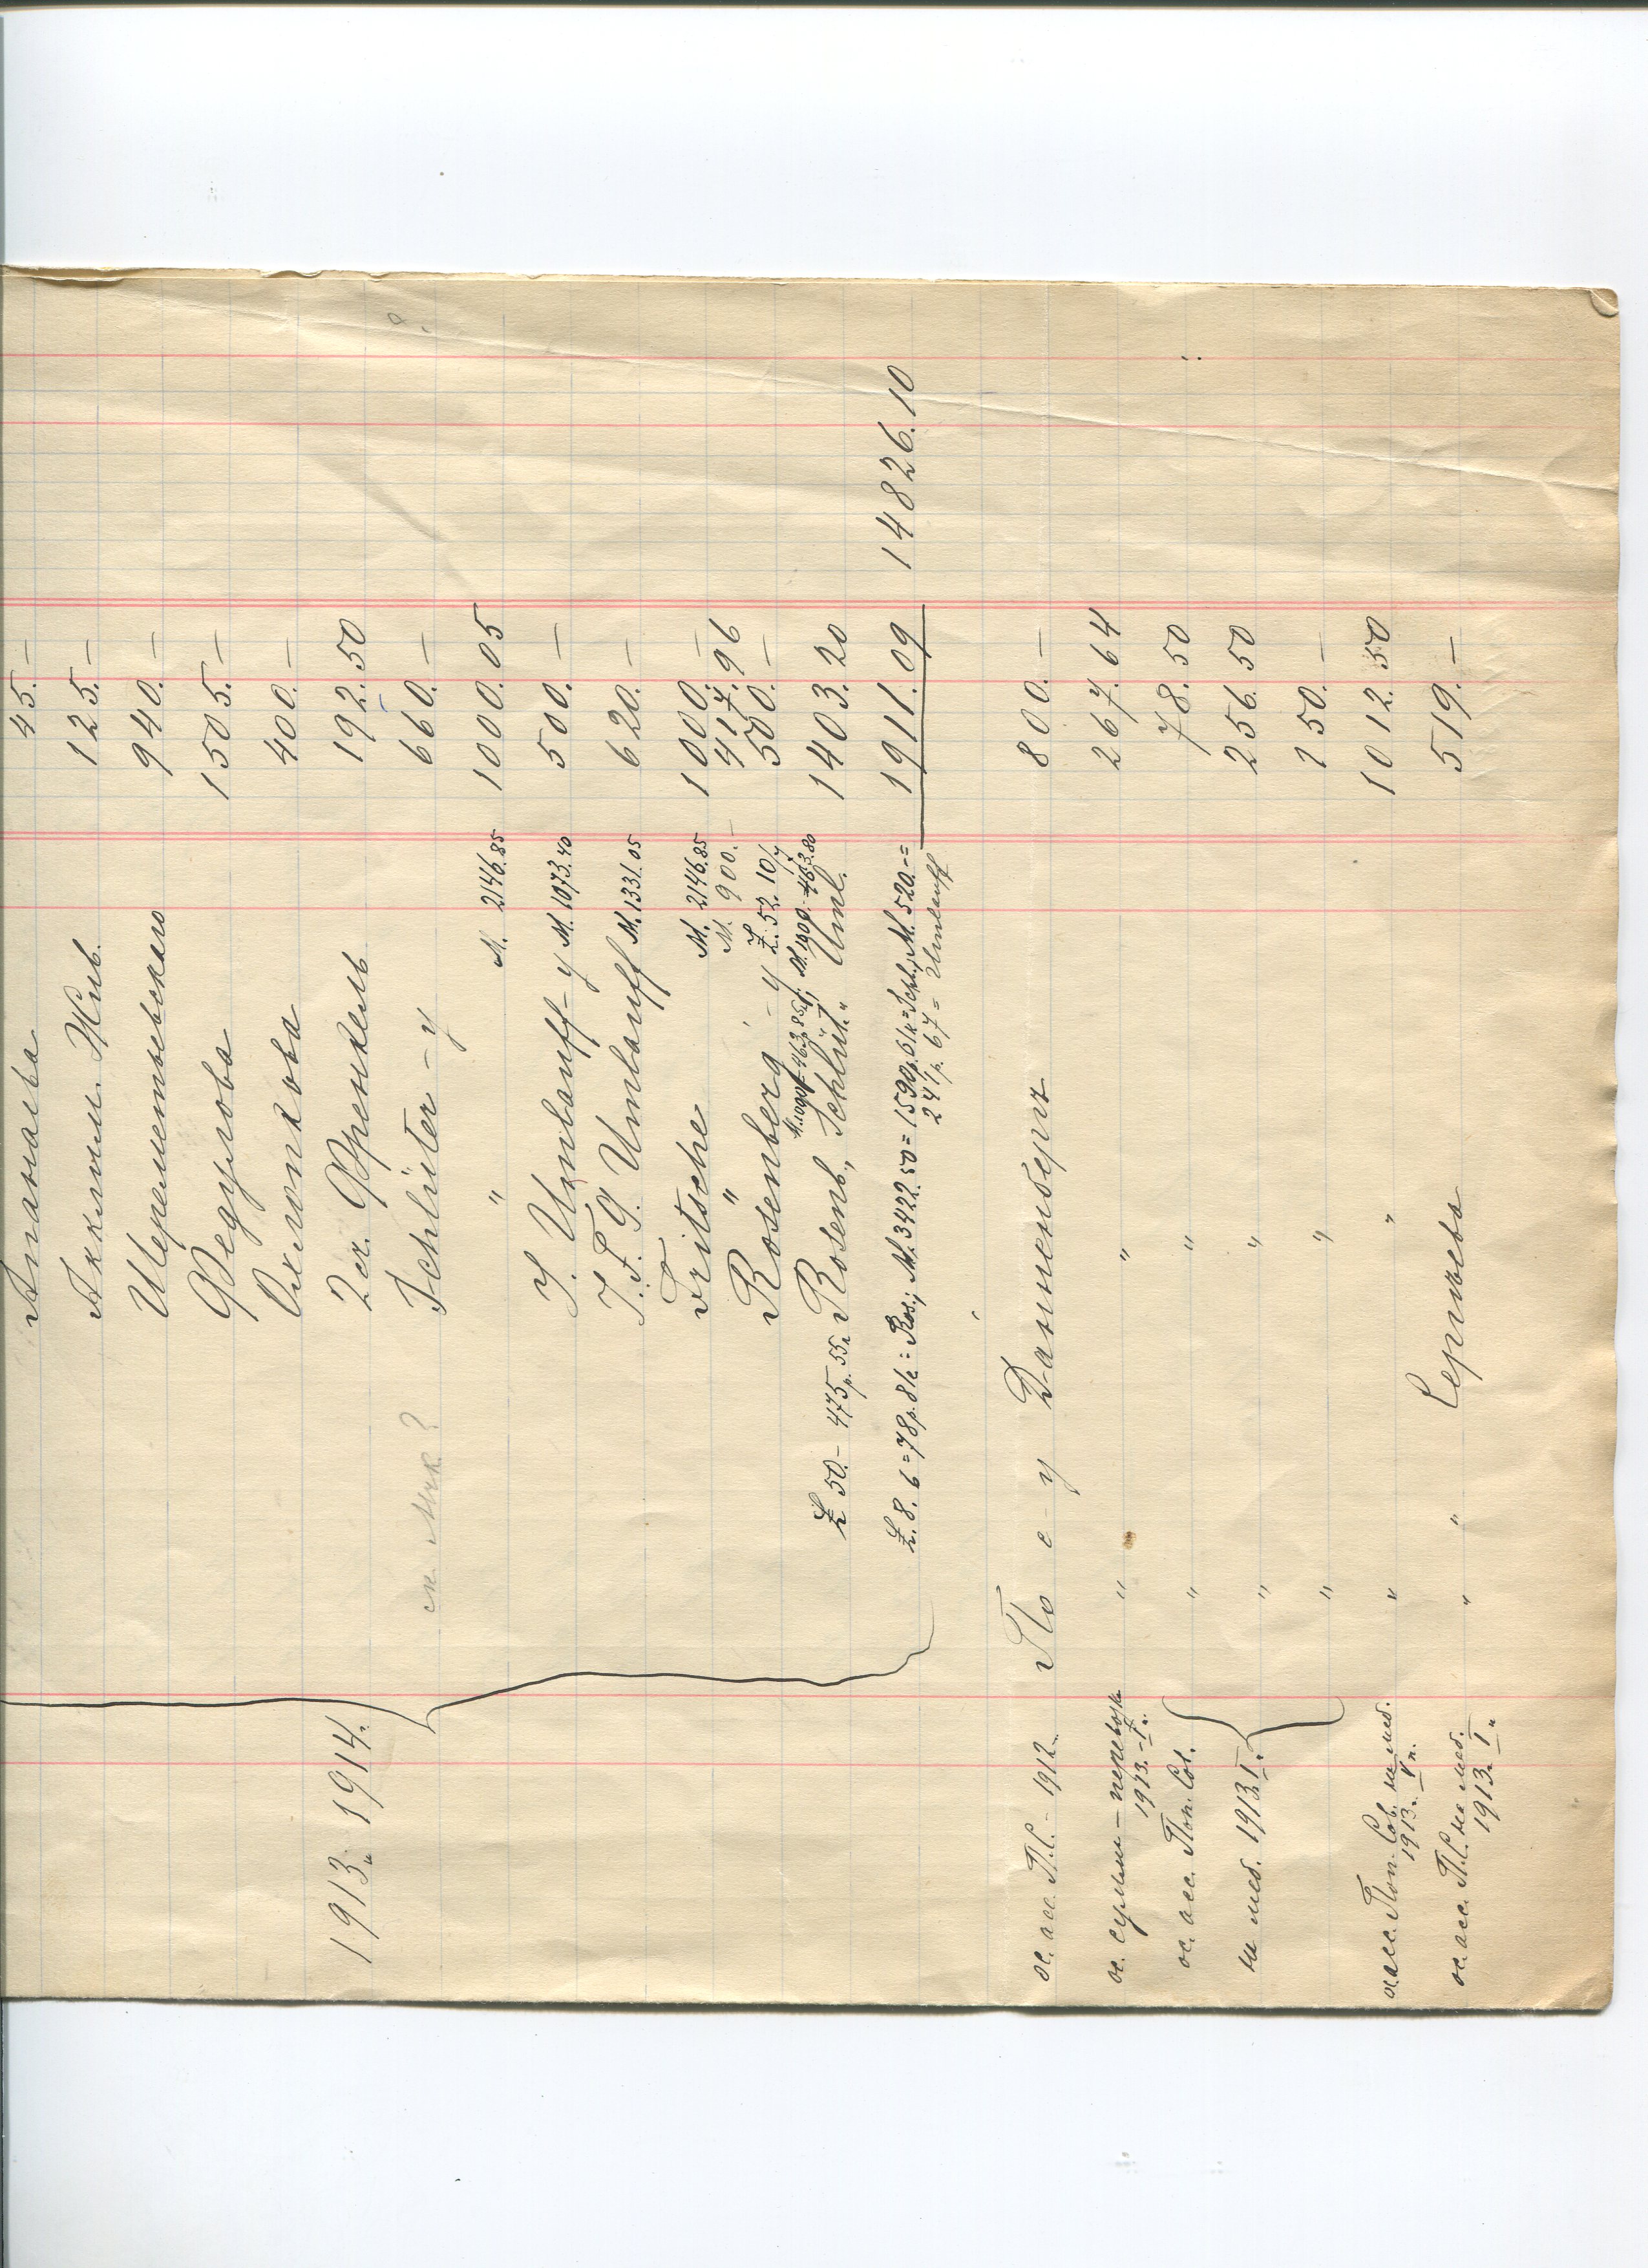 Ананьева 45. —
Акклим. Жив. 125. —
Шереметьевского 940. —
Федулова 1505. —
Охлопкова 400. —
1913 1914 г. 2 сч. Френкель 192. 50
Schlüter - у 660. —
" М. 2146.85 1000. 05
J. Umlauff - у М. 1073.40 500. —
J. F. G. Umlauff М. 1331.05 620. —
Fritsche М. 2146.85 1000. —
" М. 900. — 417. 96
Rosenberg - у £. 52. 10/7 500. —
£ 50. — 475 р. 55 к. Rosenb., Schlüt., Uml. 1403. 20
£. 8. 6 = 78 р. 81 к = Ros.; М. 3422.50 = 1590 р. 61 к = Schl.; М. 520. — = 1911. 09 14826. 10
241 р. 67 = Umlauff
ос. асс. П.С. - 1912 г. По с - у Данненберг 800. —
ос. суммы — перевозк. " " 267. 64
1913 - I п.
ос. асс. Поп. Сов. " " 78. 50
на меб. 1913 I п. " " 256. 50
" " 150. —
ос. асс. Поп. Сов. на меб. " " 1012. 50
1913 г. V п.
ос. асс. П.С. на меб. " " Сергеева 519. —
1913 г. I п.